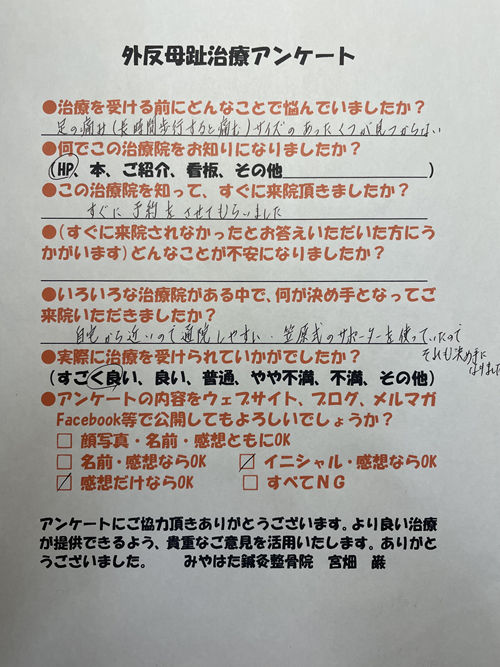 外反母趾治療アンケート
●治療を受ける前にどんなことで悩んでいましたか？
足の痛み(長時間歩行すると痛む)サイズのあったくつが見つからない
●何でこの治療院をお知りになりましたか？
(HP、本、ご紹介、看板、その他 )
●この治療院を知って、すぐに来院頂きましたか？
すぐに予約をさせてもらいました
●(すぐに来院されなかったとお答えいただいた方にう
かがいます)どんなことが不安になりましたか？
●いろいろな治療院がある中で、何が決め手となってご
来院いただきましたか？
自宅から近いので通院しやすい・笠原式のサポーターを使っていたので
それも決め手に
なりました
●実際に治療を受けられていかがでしたか？
(すごく良い、良い、普通、やや不満、不満、その他)
●アンケートの内容をウェブサイト、ブログ、メルマガ
Facebook等で公開してもよろしいでしょうか？
□ 顔写真・名前・感想ともにOK
□ 名前・感想ならOK ☑ イニシャル・感想ならOK
☑ 感想だけならOK □ すべてＮＧ
アンケートにご協力頂きありがとうございます。より良い治療
が提供できるよう、貴重なご意見を活用いたします。ありがと
うございました。 みやはた鍼灸整骨院 宮畑 巌